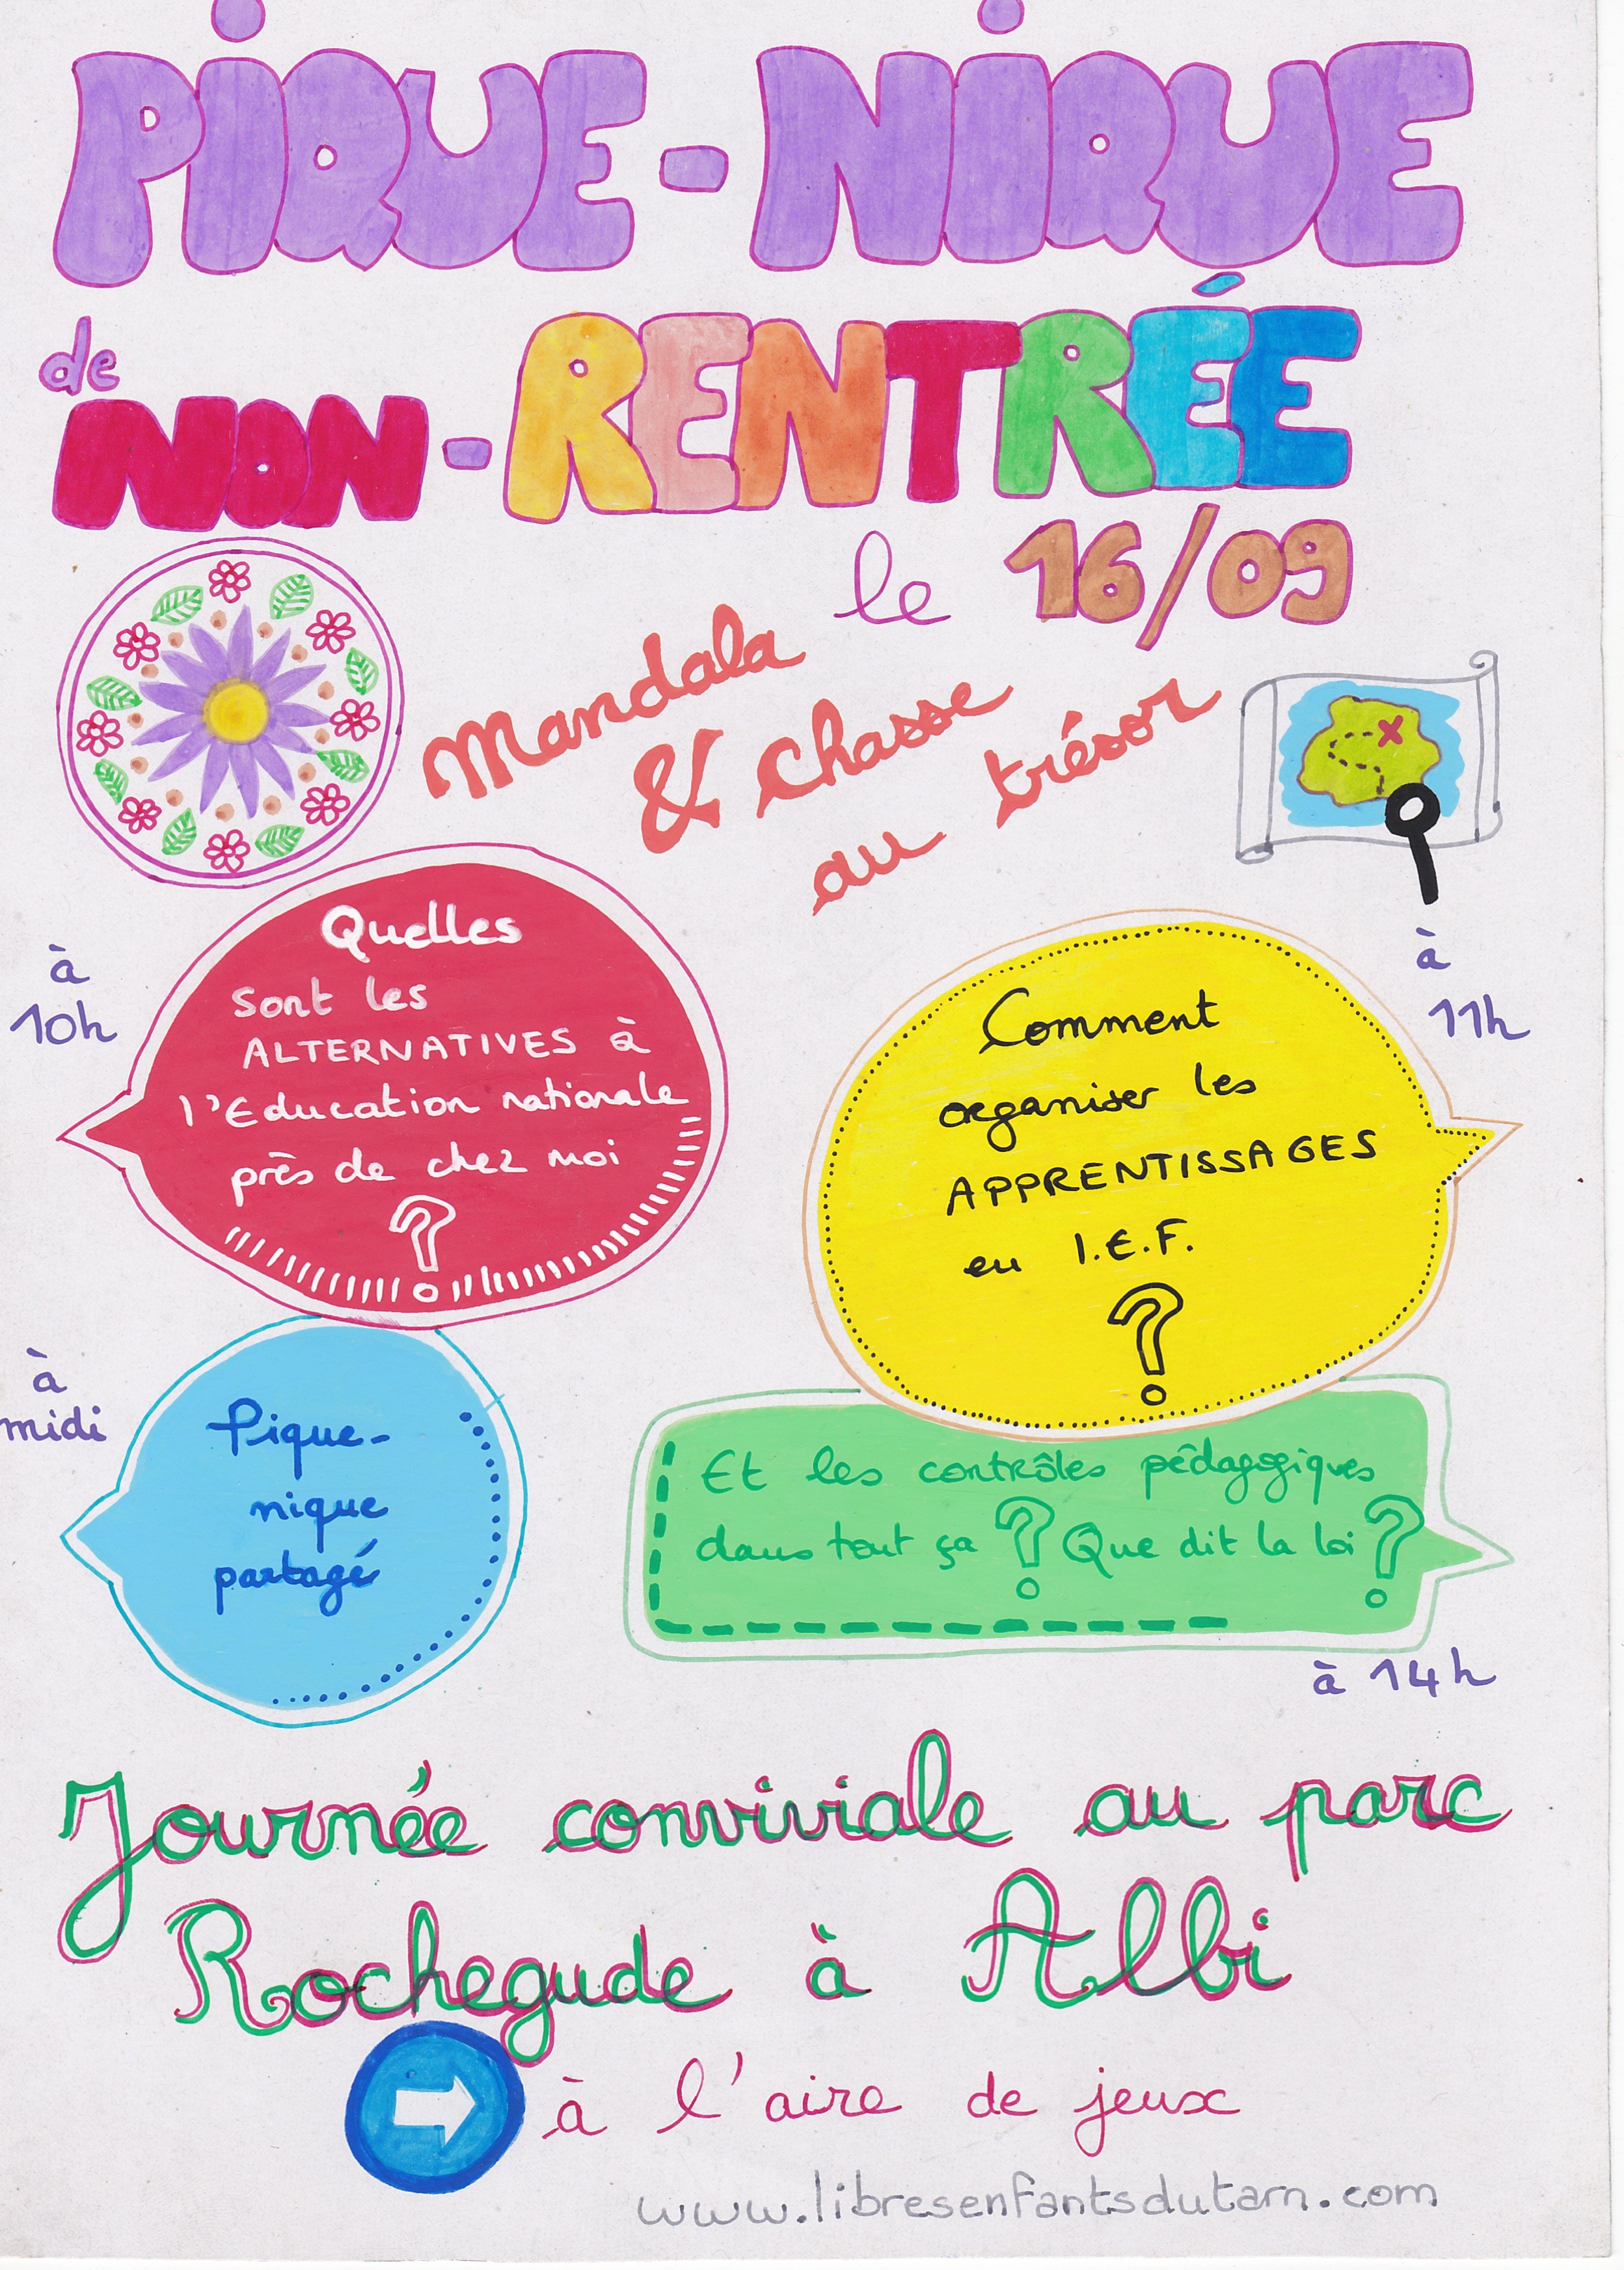 PIQUE-NIQUE
de
NON-RENTRÉE
le 16/09
Mandala
& Chasse
au trésor
à
10h
Quelles
sont les
ALTERNATIVES à
l'Education nationale
près de chez moi
?
à
11h
Comment
organiser les
APPRENTISSAGES
en I.E.F.
?
à
midi
Pique-
nique
partagé
Et les contrôles pédagogiques
dans tout ça ? Que dit la loi ?
à 14h
Journée conviviale au parc
Rochegude à Albi
à l'aire de jeux
www.libresenfantsdutarn.com